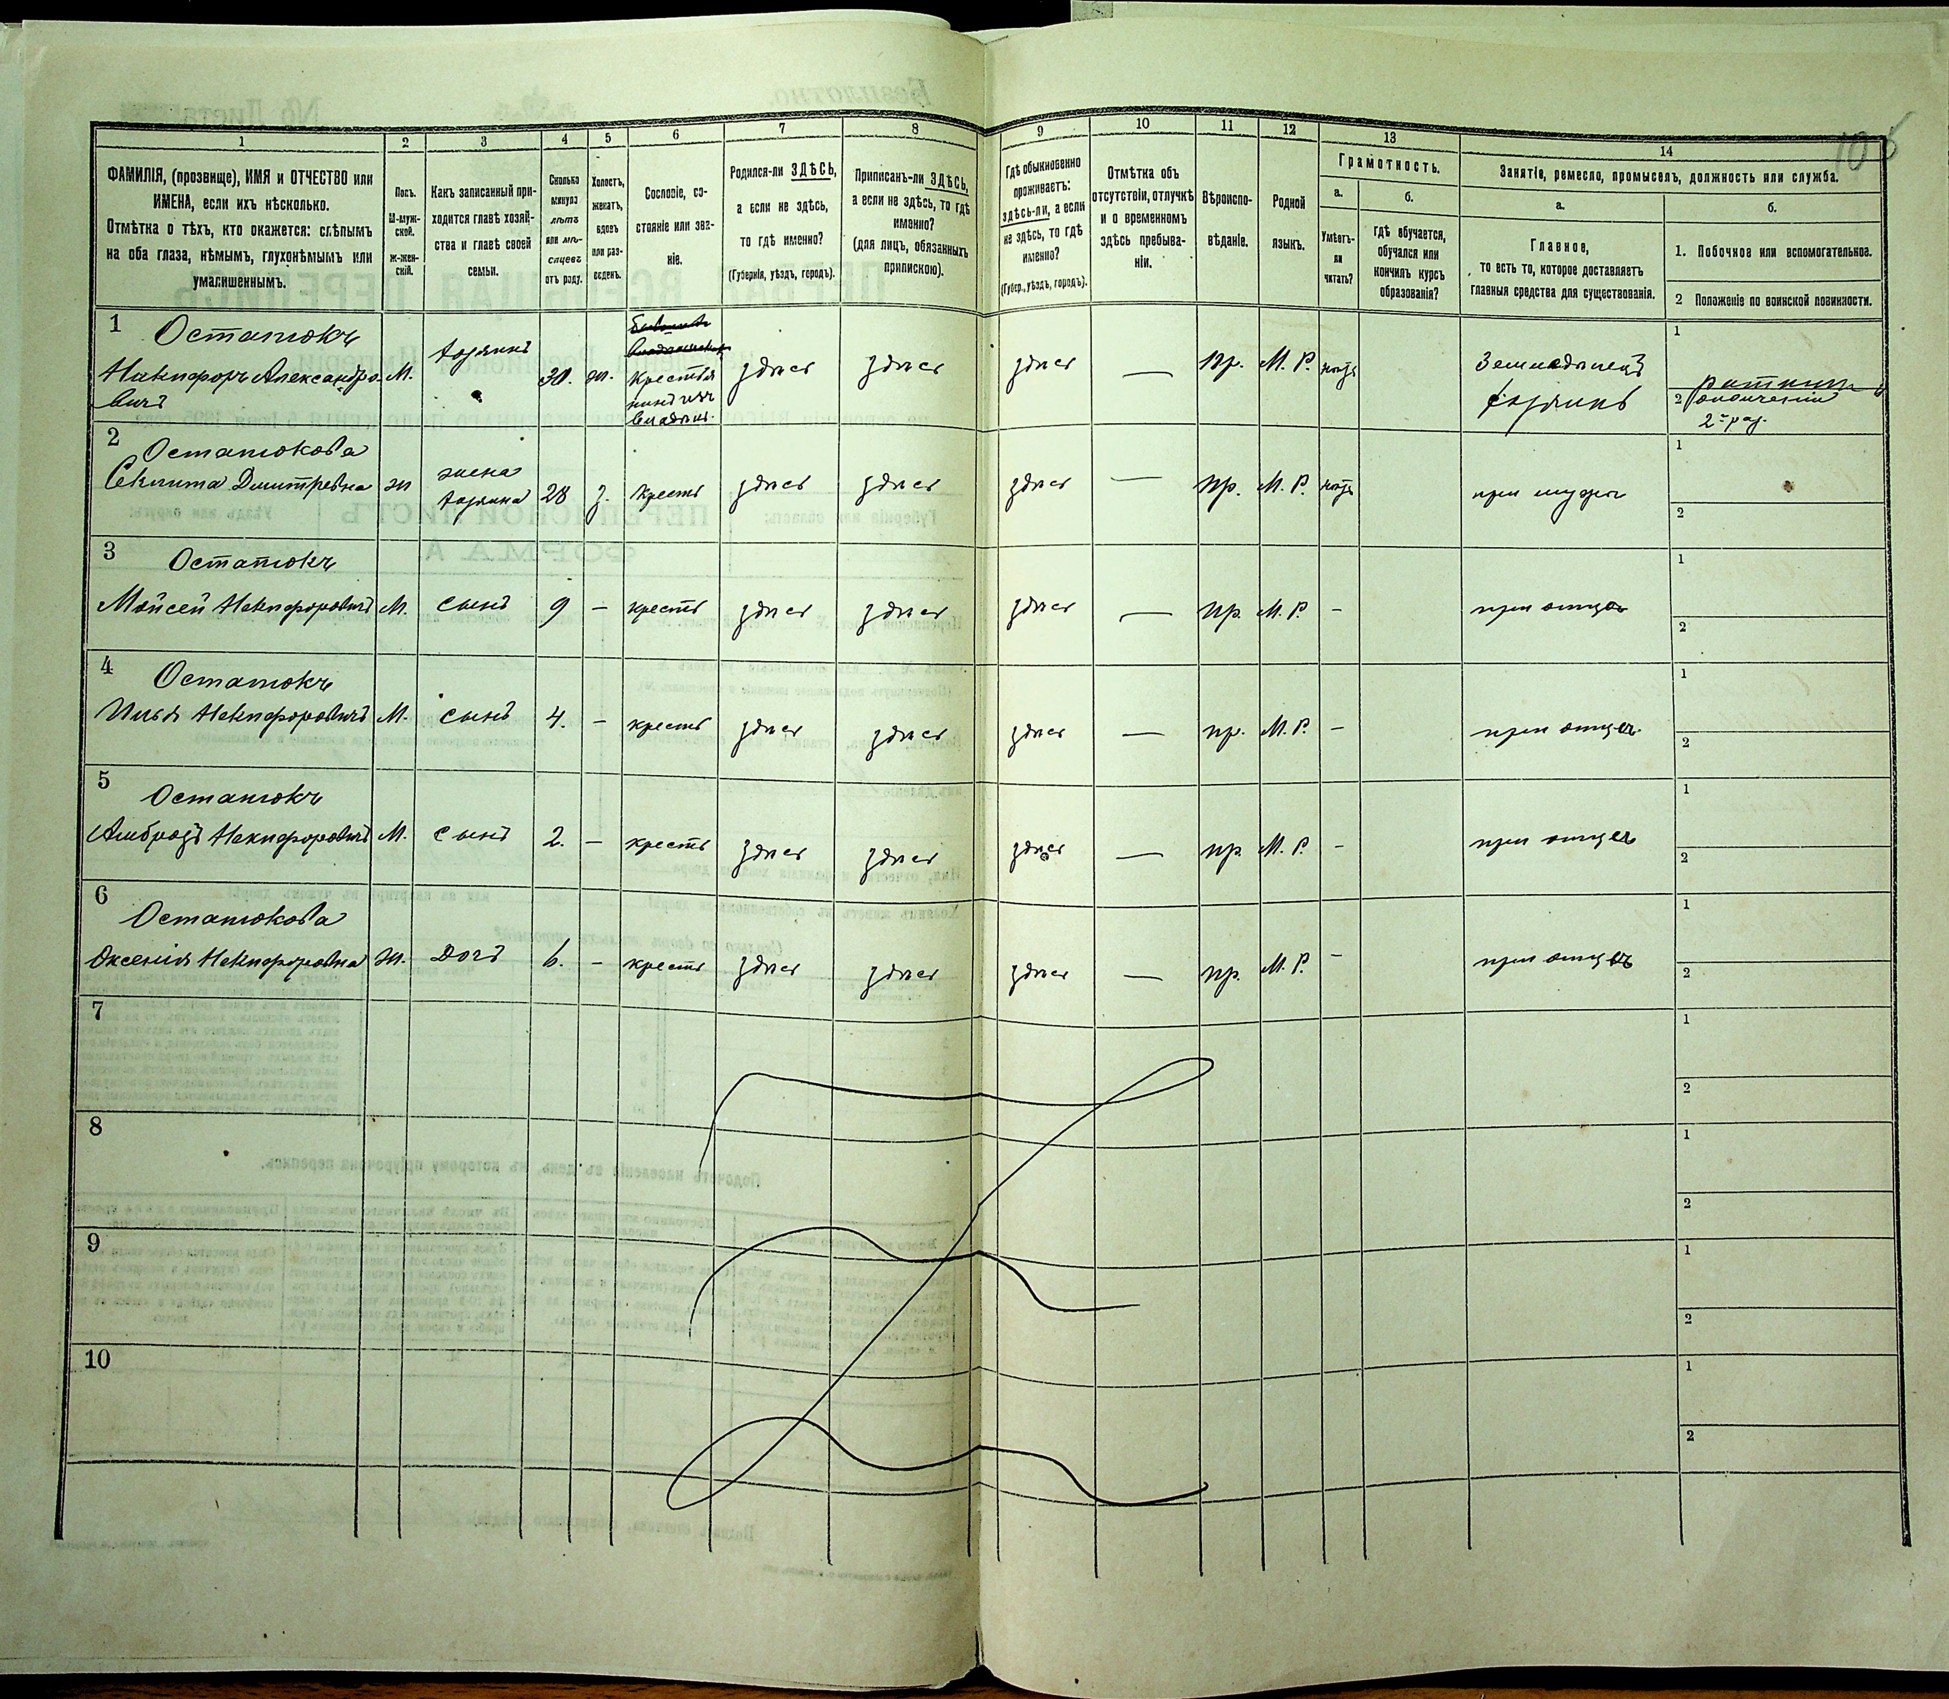 1
2
3
4
5
6
7
8
9
10
11
12
13
14
ФАМИЛІЯ, (прозвище), ИМЯ и ОТЧЕСТВО или
ИМЕНА, если ихъ нѣсколько.
Отмѣтка о тѣхъ, кто окажется: слѣпымъ
на оба глаза, нѣмымъ, глухонѣмымъ или
умалишеннымъ.
Полъ.
М-муж-
ской.
Ж-жен-
скій.
Какъ записанный при-
ходится главѣ хозяй-
ства и главѣ своей
семьи.
Сколько
минуло
лѣтъ
или мѣ-
сяцевъ
отъ роду.
Холостъ,
женатъ,
вдовъ
или раз-
веденъ.
Сословіе, со-
стояніе или зва-
ніе.
Родился-ли ЗДѢСЬ,
а если не здѣсь,
то гдѣ именно?
(Губернія, уѣздъ, городъ).
Приписанъ-ли ЗДѢСЬ,
а если не здѣсь, то гдѣ
именно?
(для лицъ, обязанныхъ
припискою).
Гдѣ обыкновенно
проживаетъ:
здѣсь-ли, а если
не здѣсь, то гдѣ
именно?
(Губер., уѣздъ, городъ).
Отмѣтка объ
отсутствіи, отлучкѣ
и о временномъ
здѣсь пребыва-
ніи.
Вѣроиспо-
вѣданіе.
Родной
языкъ.
Грамотность.
а.
Умѣетъ-
ли
читать?
б.
гдѣ обучается,
обучался или
кончилъ курсъ
образованія?
Занятіе, ремесло, промыселъ, должность или служба.
а.
Главное,
то есть то, которое доставляетъ
главныя средства для существованія.
б.
1. Побочное или вспомогательное.
2 Положеніе по воинской повинности.
1 Остапюкъ
Никифоръ Александро-
вичъ
М.
хозяинъ
30.
ж.
Крестья
нинъ изъ
владѣльч.
здѣсь
здѣсь
здѣсь
—
пр.
М. Р.
нѣтъ
Земледѣлецъ
хозяинъ
1
2
2 раз.
2 Остапюкова
Секлита Дмитревна
ж
жена
хозяина
28
з.
крест
здѣсь
здѣсь
здѣсь
—
пр.
М. Р.
нѣтъ
при мужѣ
1
2
3 Остапюкъ
Мойсей Никифоровичъ
М.
сынъ
9
—
крест
здѣсь
здѣсь
здѣсь
—
пр.
М. Р.
—
при отцѣ
1
2
4 Остапюкъ
Илья Никифоровичъ
М.
сынъ
4.
—
крест
здѣсь
здѣсь
здѣсь
—
пр.
М. Р.
—
при отцѣ
1
2
5 Остапюкъ
Амброзъ Никифоровичъ
М.
сынъ
2.
—
крест
здѣсь
здѣсь
здѣсь
—
пр.
М. Р.
—
при отцѣ
1
2
6 Остапюкова
Оксенія Никифоровна
ж.
дочъ
6.
—
крест
здѣсь
здѣсь
здѣсь
—
пр.
М. Р.
—
при отцѣ
1
2
7
1
2
8
1
2
9
1
2
10
1
2